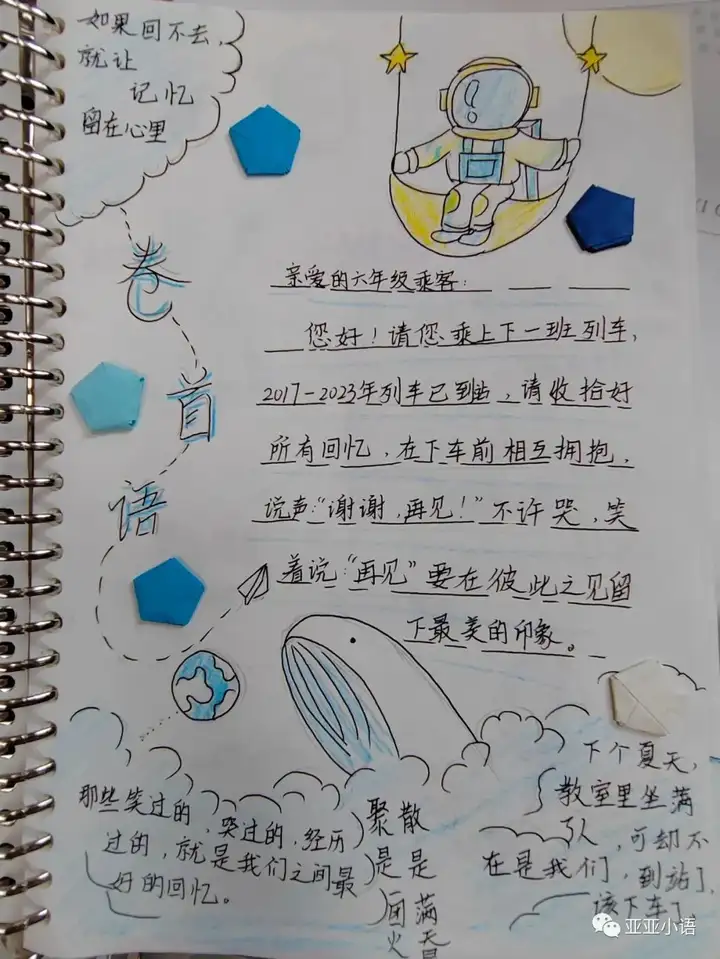 如果回不去,
就让
记忆
留在心里
卷
首
语
亲爱的六年级乘客:
您好!请您乘上下一班列车,
2017-2023年列车已到站,请收拾好
所有回忆,在下车前相互拥抱,
说声:“谢谢,再见!”不许哭,笑
着说:“再见”要在彼此之见留
下最美的印象。
那些笑过的,哭过的,经历
过的,就是我们之间最
好的回忆。
聚散
是是
团满
火天
下个夏天,
教室里坐满
了人,可却不
在是我们,到站了,
该下车了
亚亚小语